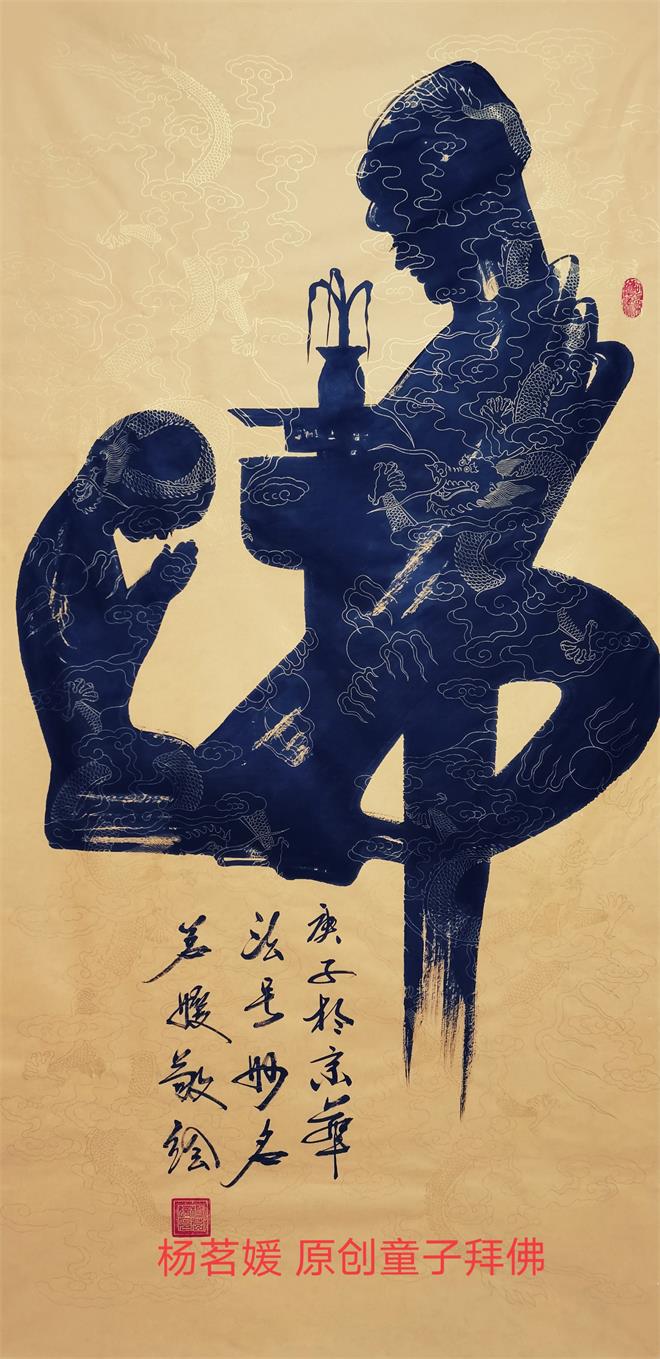 佛
庚子於京華
法号妙名
茗媛敬绘
杨茗媛 原创童子拜佛